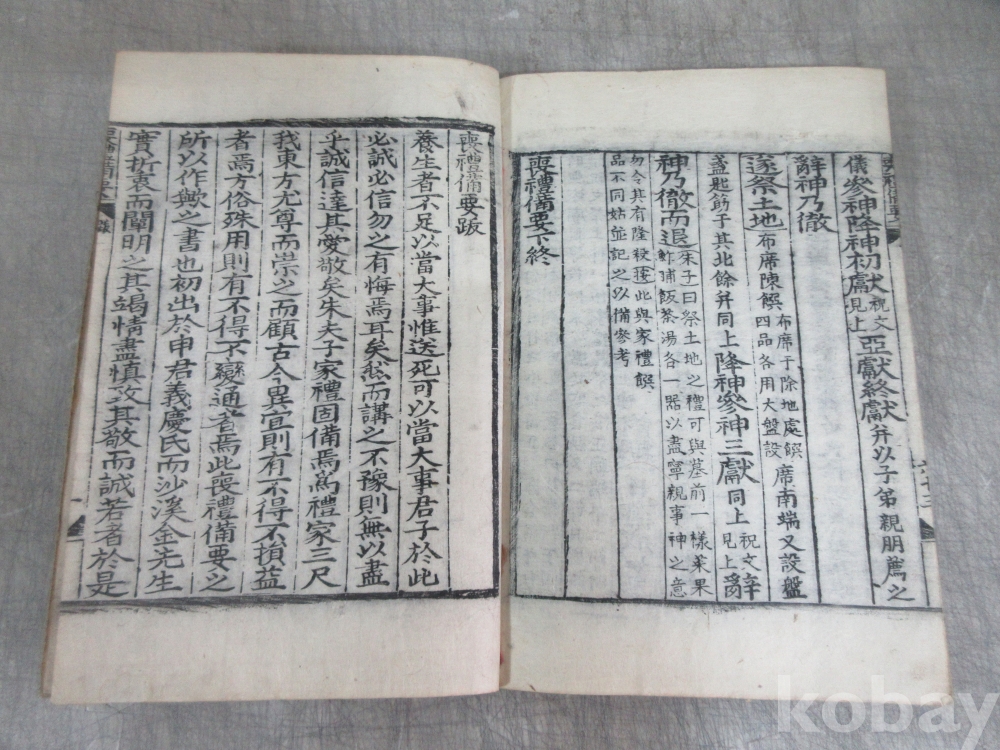 儀參神降神初獻祝文見上亞獻終獻并以子弟親朋薦之
辭神乃徹
遂祭土地布席于除地處饌布席陳饌四品各用大盤設席南端又設盤
盞匙筯于其北餘并同上降神參神三獻同上祝文見上辭
神乃徹而退朱子曰祭土地之禮可與墓前一樣菜果鮓脯飯茶湯各一器以盡寧親事神之意
勿令其有隆殺接此與家禮饌品不同姑並記之以備參考
喪禮備要下終
喪禮備要跋
養生者不足以當大事惟送死可以當大事君子於此
必誠必信勿之有悔焉耳矣然而講之不豫則無以盡
乎誠信達其愛敬矣朱夫子家禮固備焉爲禮家三尺
我東方尤尊而崇之而顧古今異宜則有不得不損益
者焉方俗殊用則有不得不變通者焉此喪禮備要之
所以作歟之書也初出於申君義慶氏而沙溪金先生
實折衷而闡明之其竭情盡愼致其敬而誠若者於是
kobay